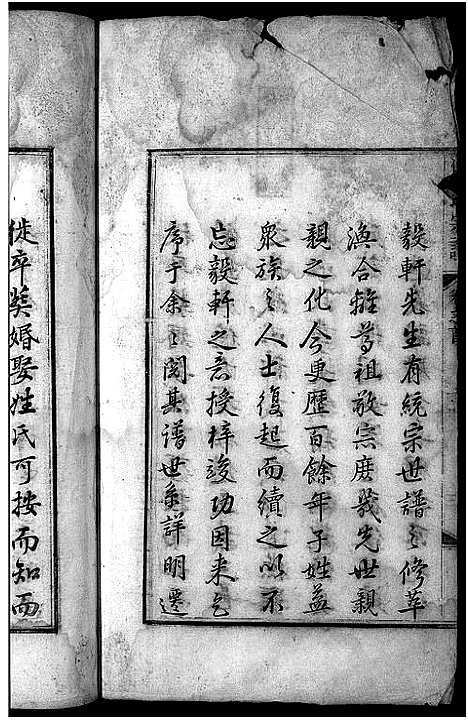 毅軒先生有統宗世譜之修萃
渙合離尊祖敬宗庶幾先世親
親之化今更歷百餘年子姓益
衆族之人士復起而續之以不
忘毅軒之意授梓竣功因來乞
序于余余閱其譜世系詳明遷
徙卒葬婚娶姓氏可按而知而